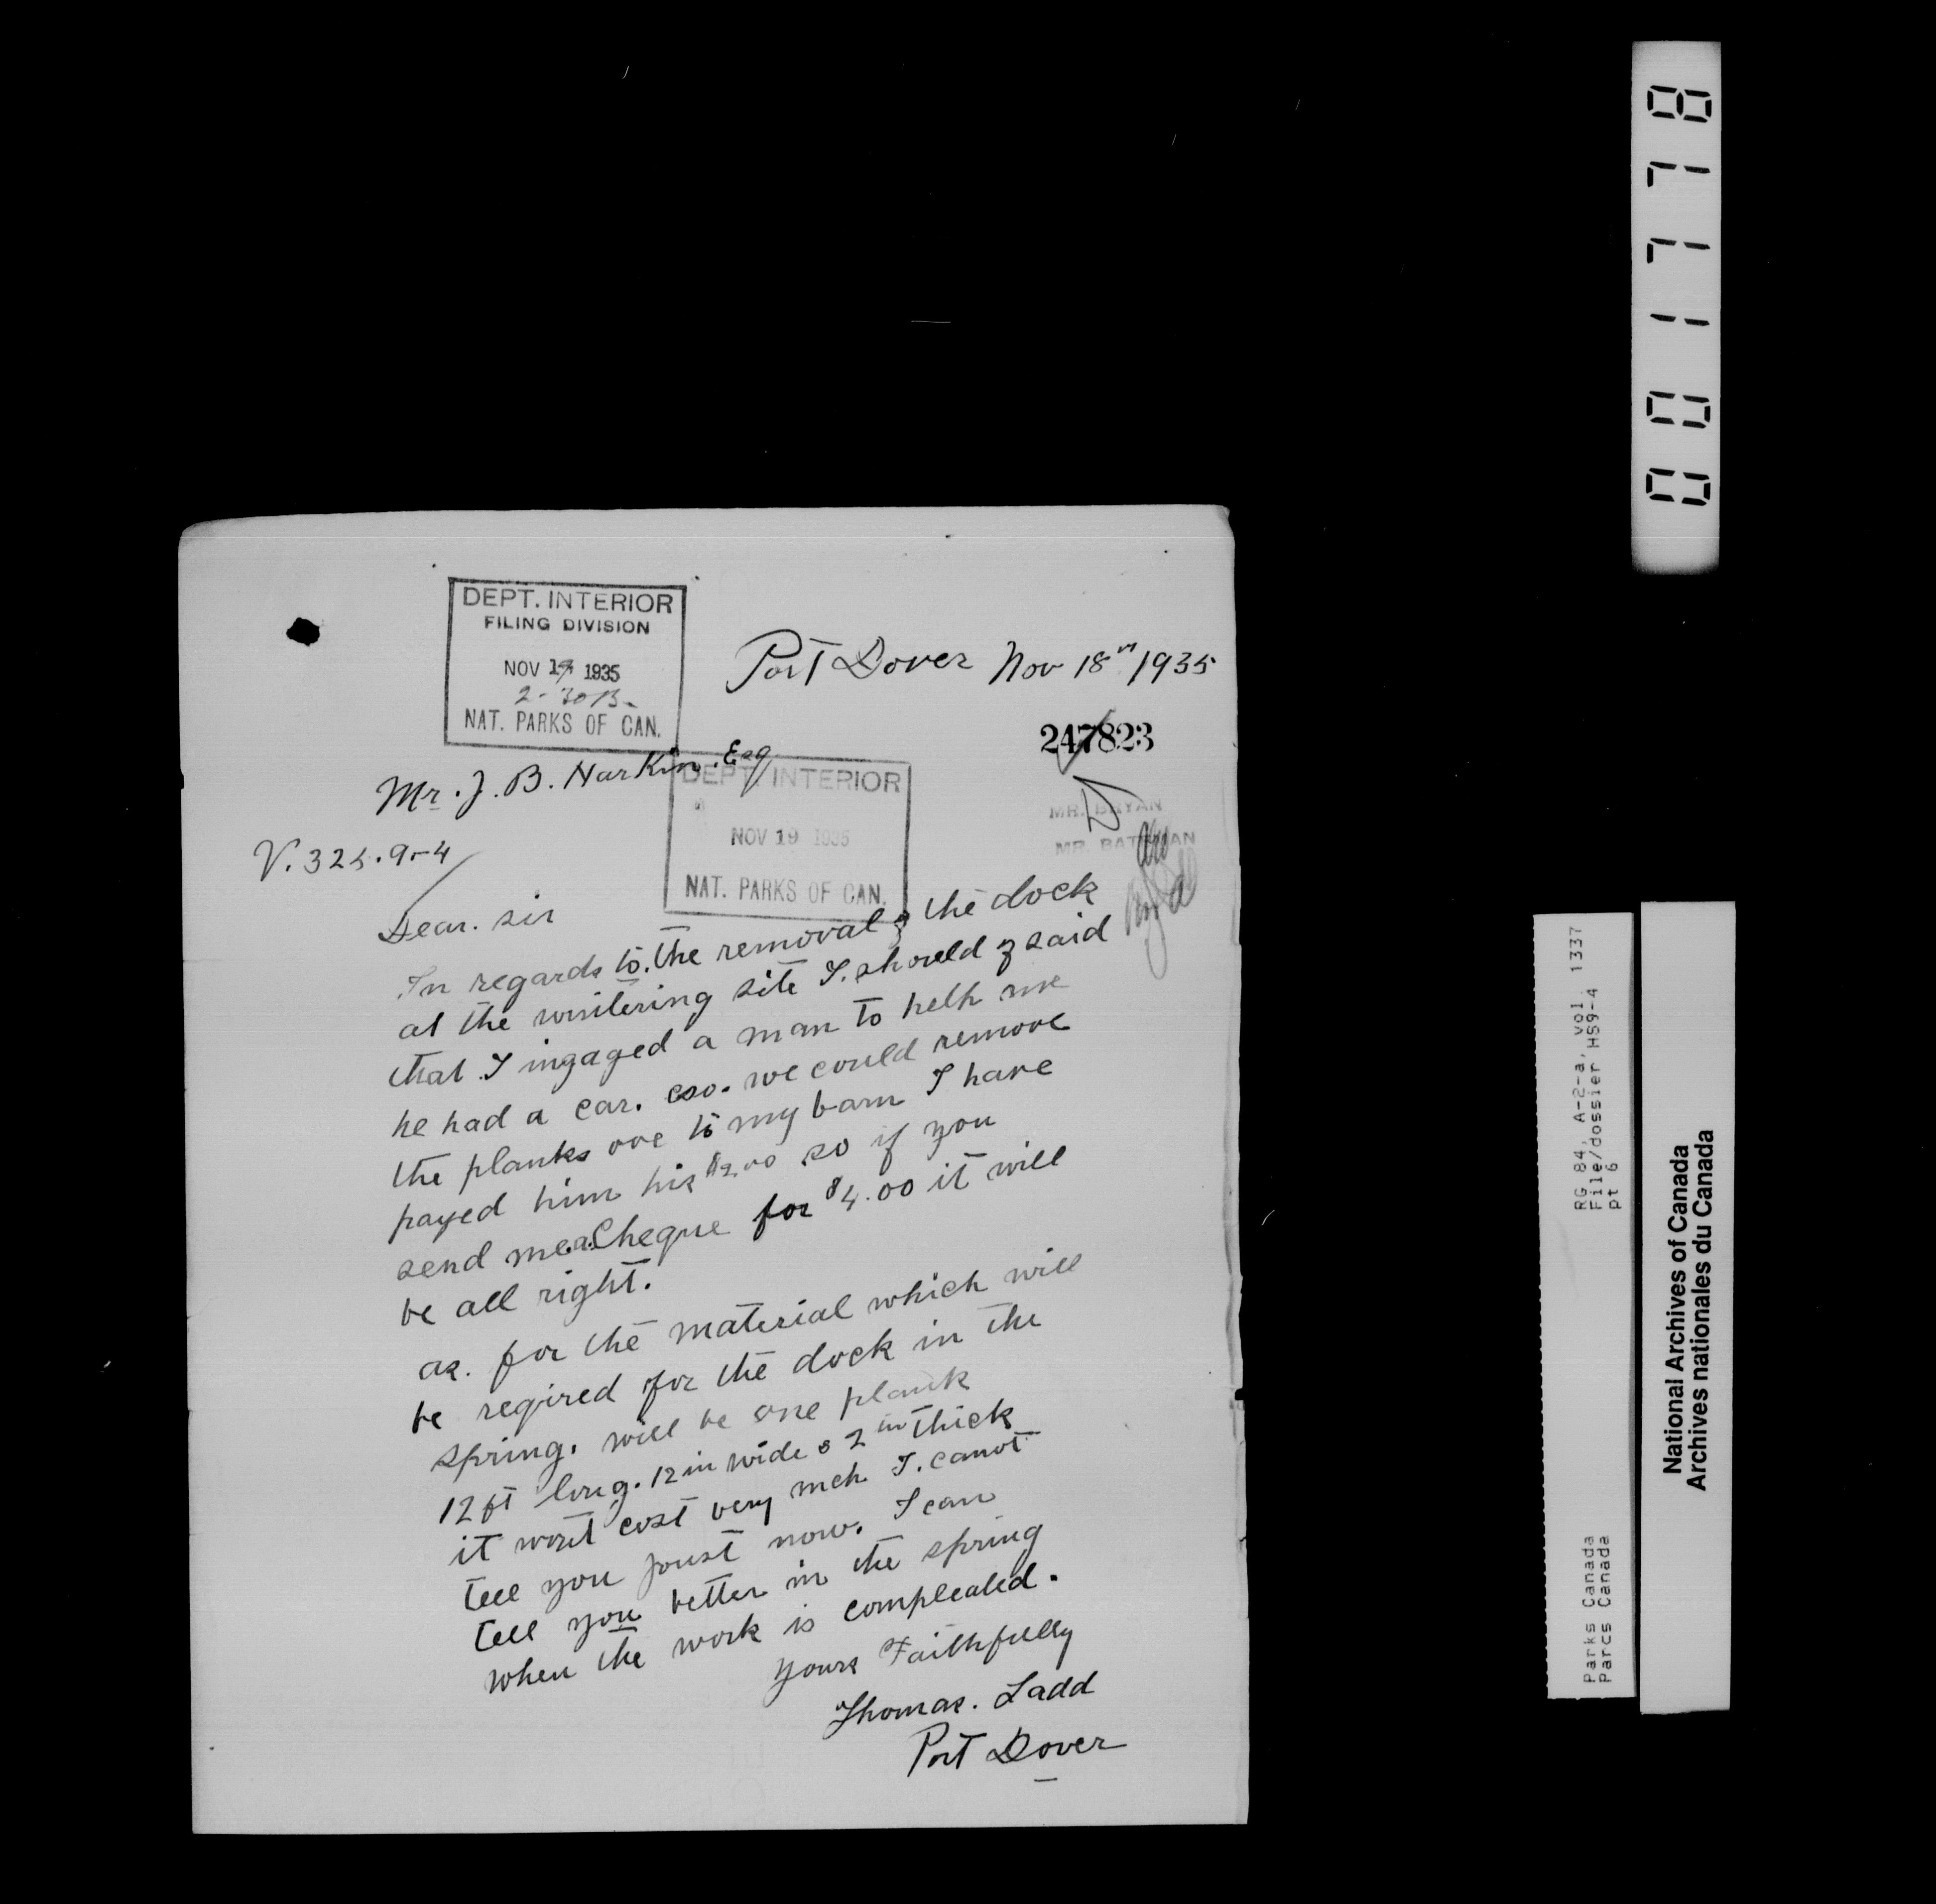 DEPT. INTERIOR
FILING DIVISION
NOV 19 1935
NAT. PARKS OF CAN.
Port Dover Nov 18th 1935
247823
Mr. J. B. Harkin. Esq
DEPT. INTERIOR
NOV 19 1935
NAT. PARKS OF CAN.
MR. BRYAN
MR. BATEMAN
V. 325.9-4
Dear. sir
In regards to. the removal of the dock
at the wintering site I. should of said
that I ingaged a man to help me
he had a car. eso. we could remove
the planks ove to my barn I have
payed him his $2.00 so if you
send me.a.Cheque for $4.00 it will
be all right.
as. for the material which will
be regired for the dock in the
spring. will be one plank
12 ft long. 12 in wide & 2 in thick
it wont cost very mch I. canot
tell you joust now. I can
tell you better in the spring
when the work is compleated.
yours Faithfully
Thomas. Ladd
Port Dover
001778
RG 84, A-2-a, vol. 1337
File/dossier HS9-4
pt 6
Parks Canada
Parcs Canada
National Archives of Canada
Archives nationales du Canada